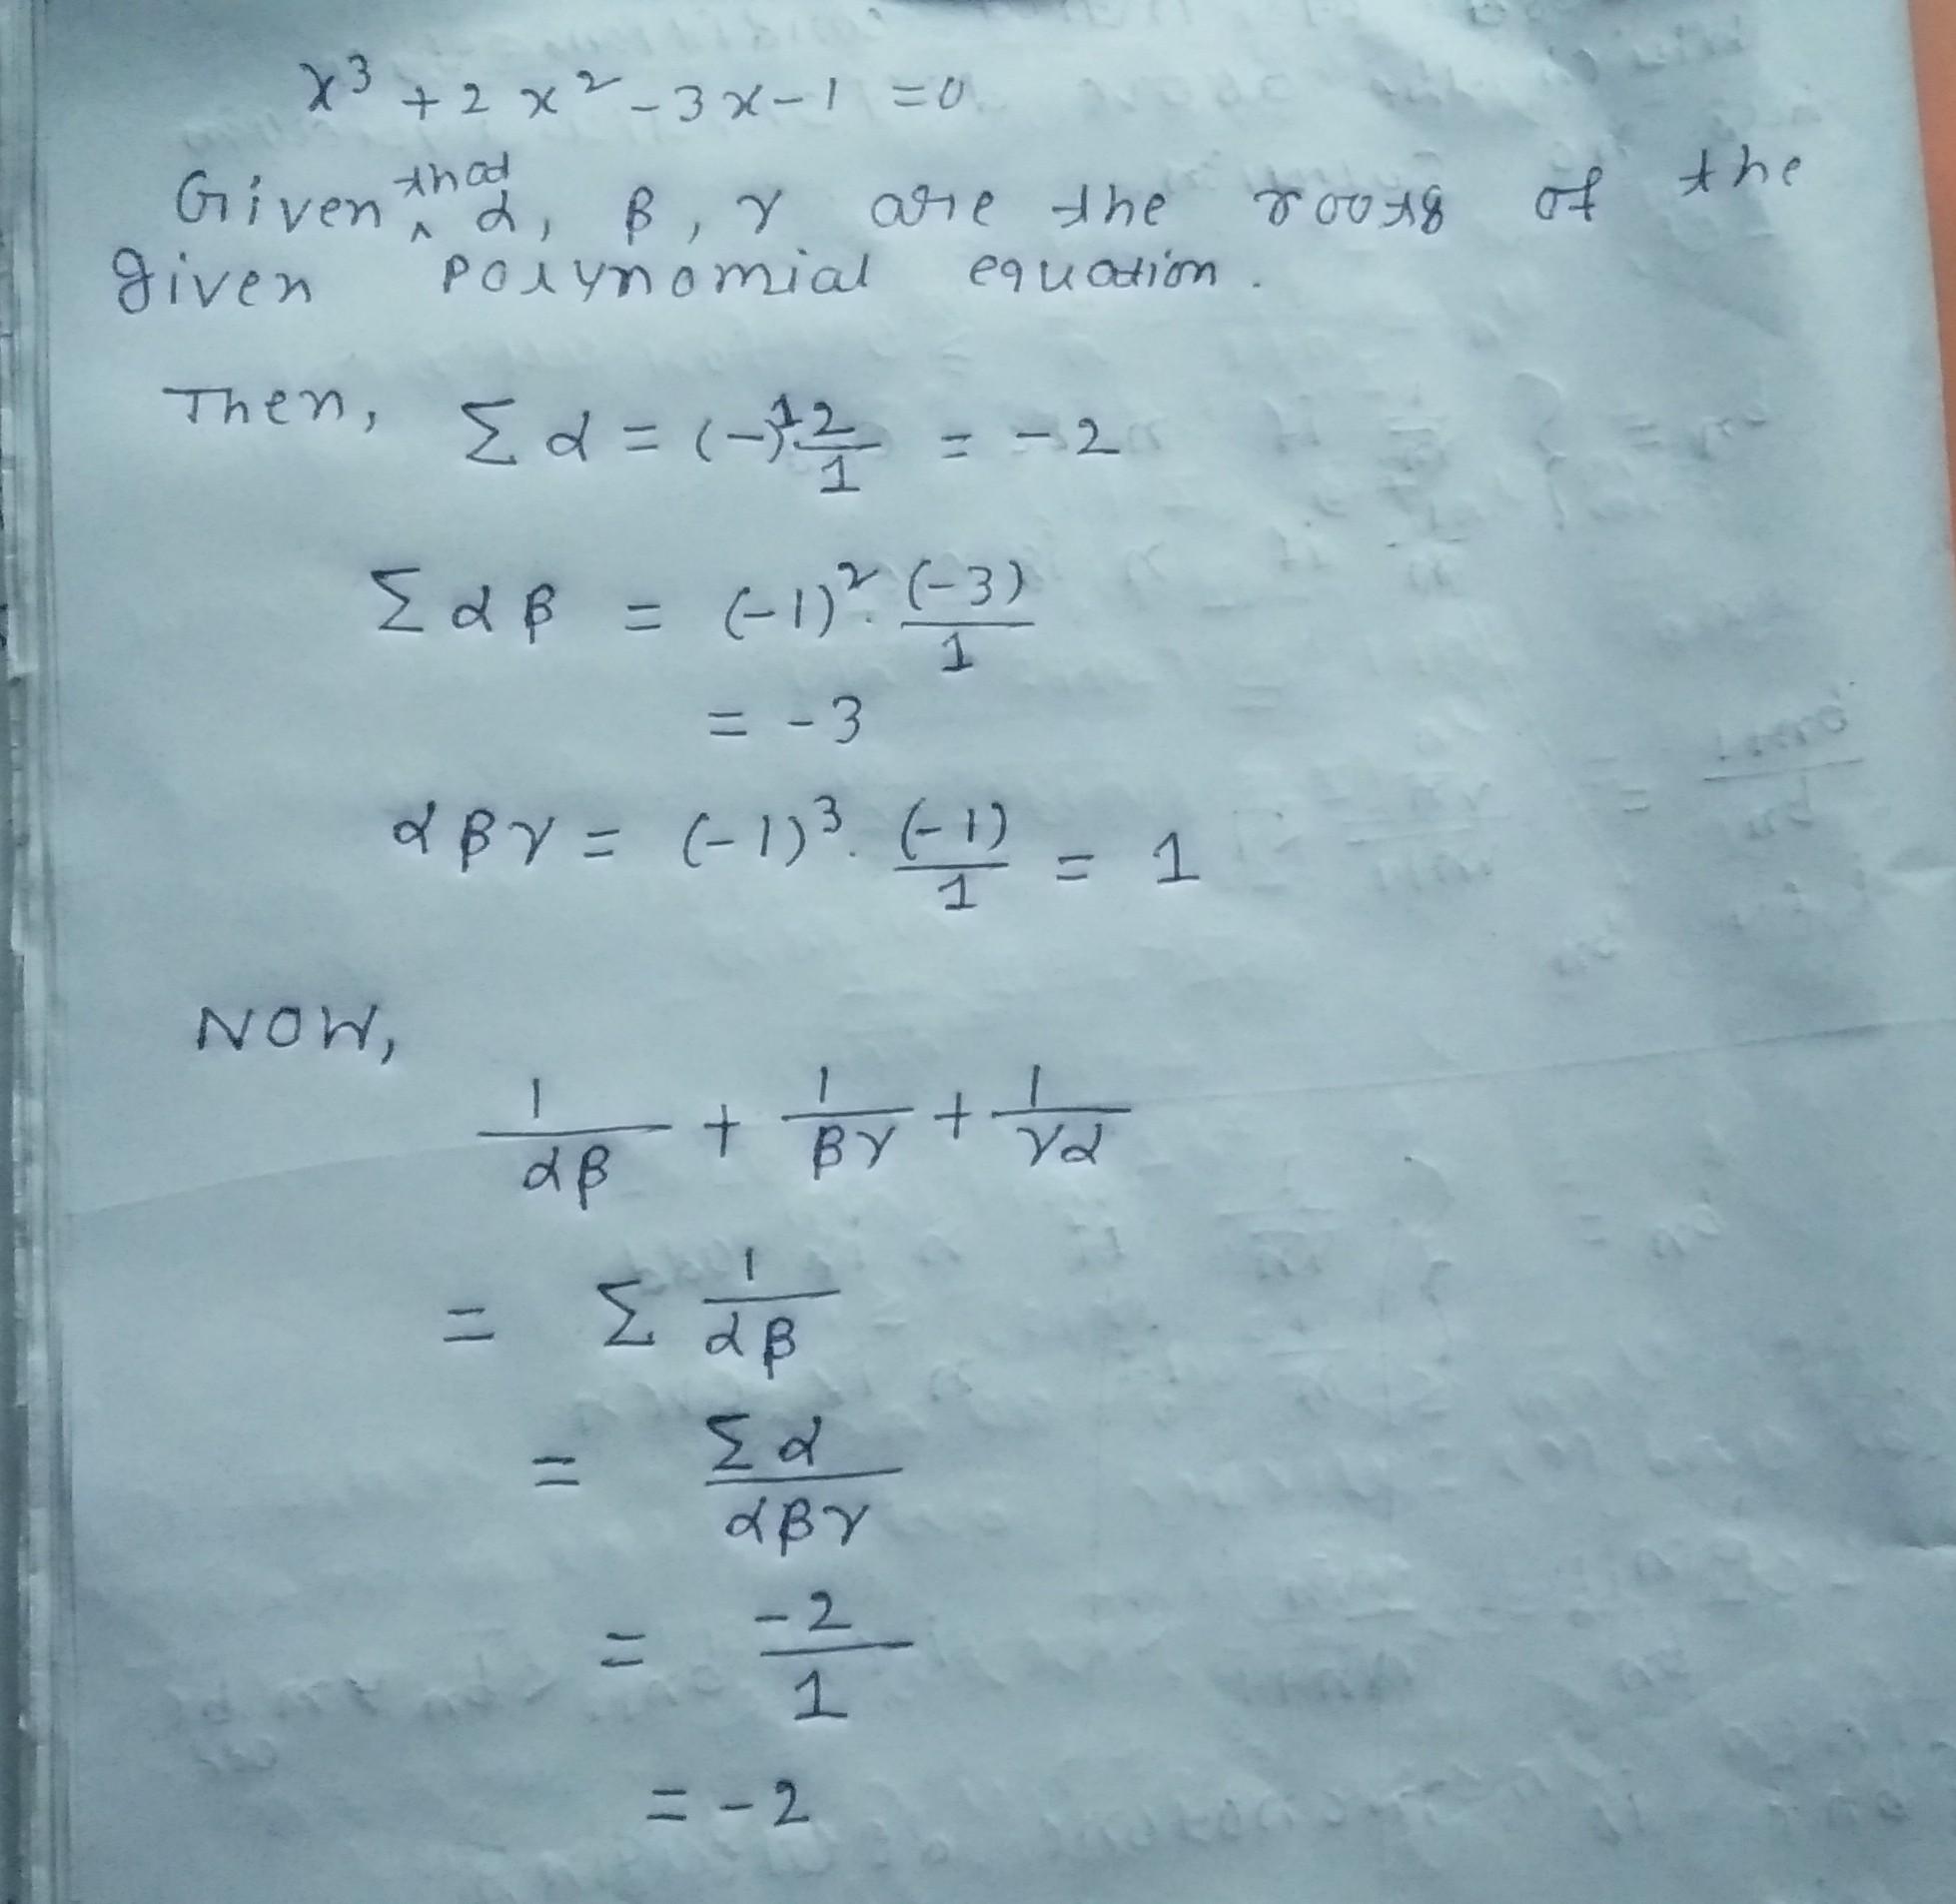 x³ + 2x² - 3x - 1 = 0
Given that α, β, γ are the roots of the
given polynomial equation.
Then, Σα = (-)¹ 2/1 = -2
Σαβ = (-1)² · (-3)/1
= -3
αβγ = (-1)³ · (-1)/1 = 1
NOW,
1/αβ + 1/βγ + 1/γα
= Σ 1/αβ
= Σα/αβγ
= -2/1
= -2